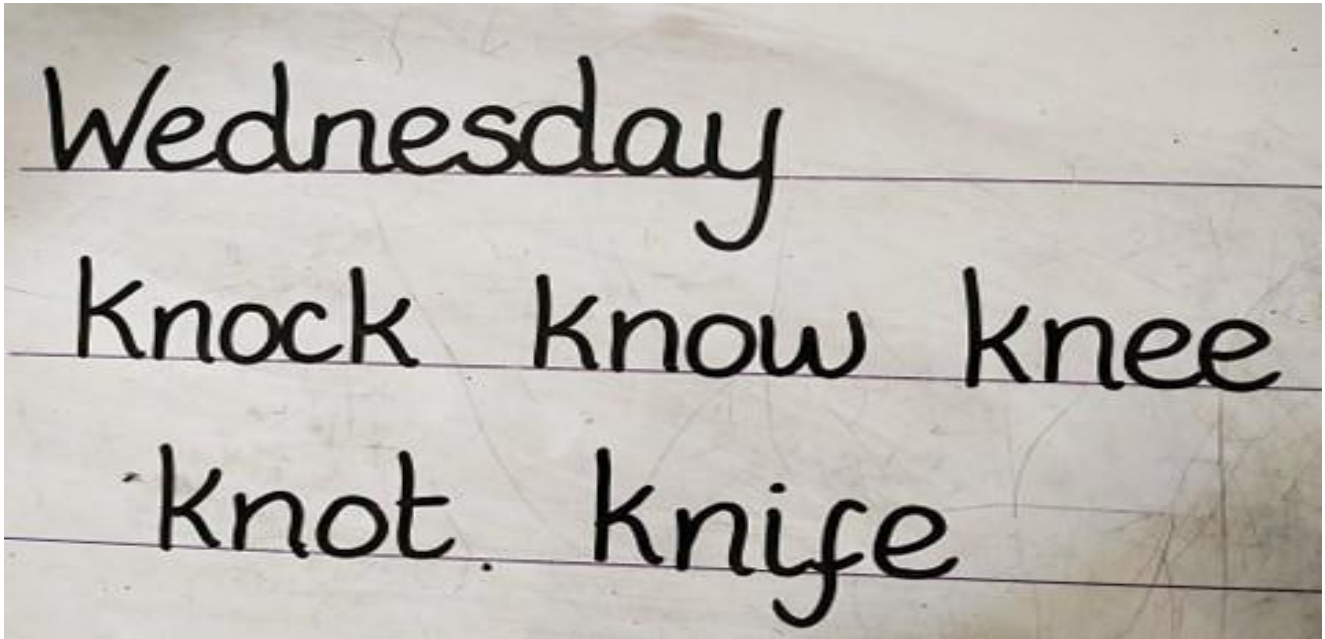 Wednesday
knock know knee
knot knife